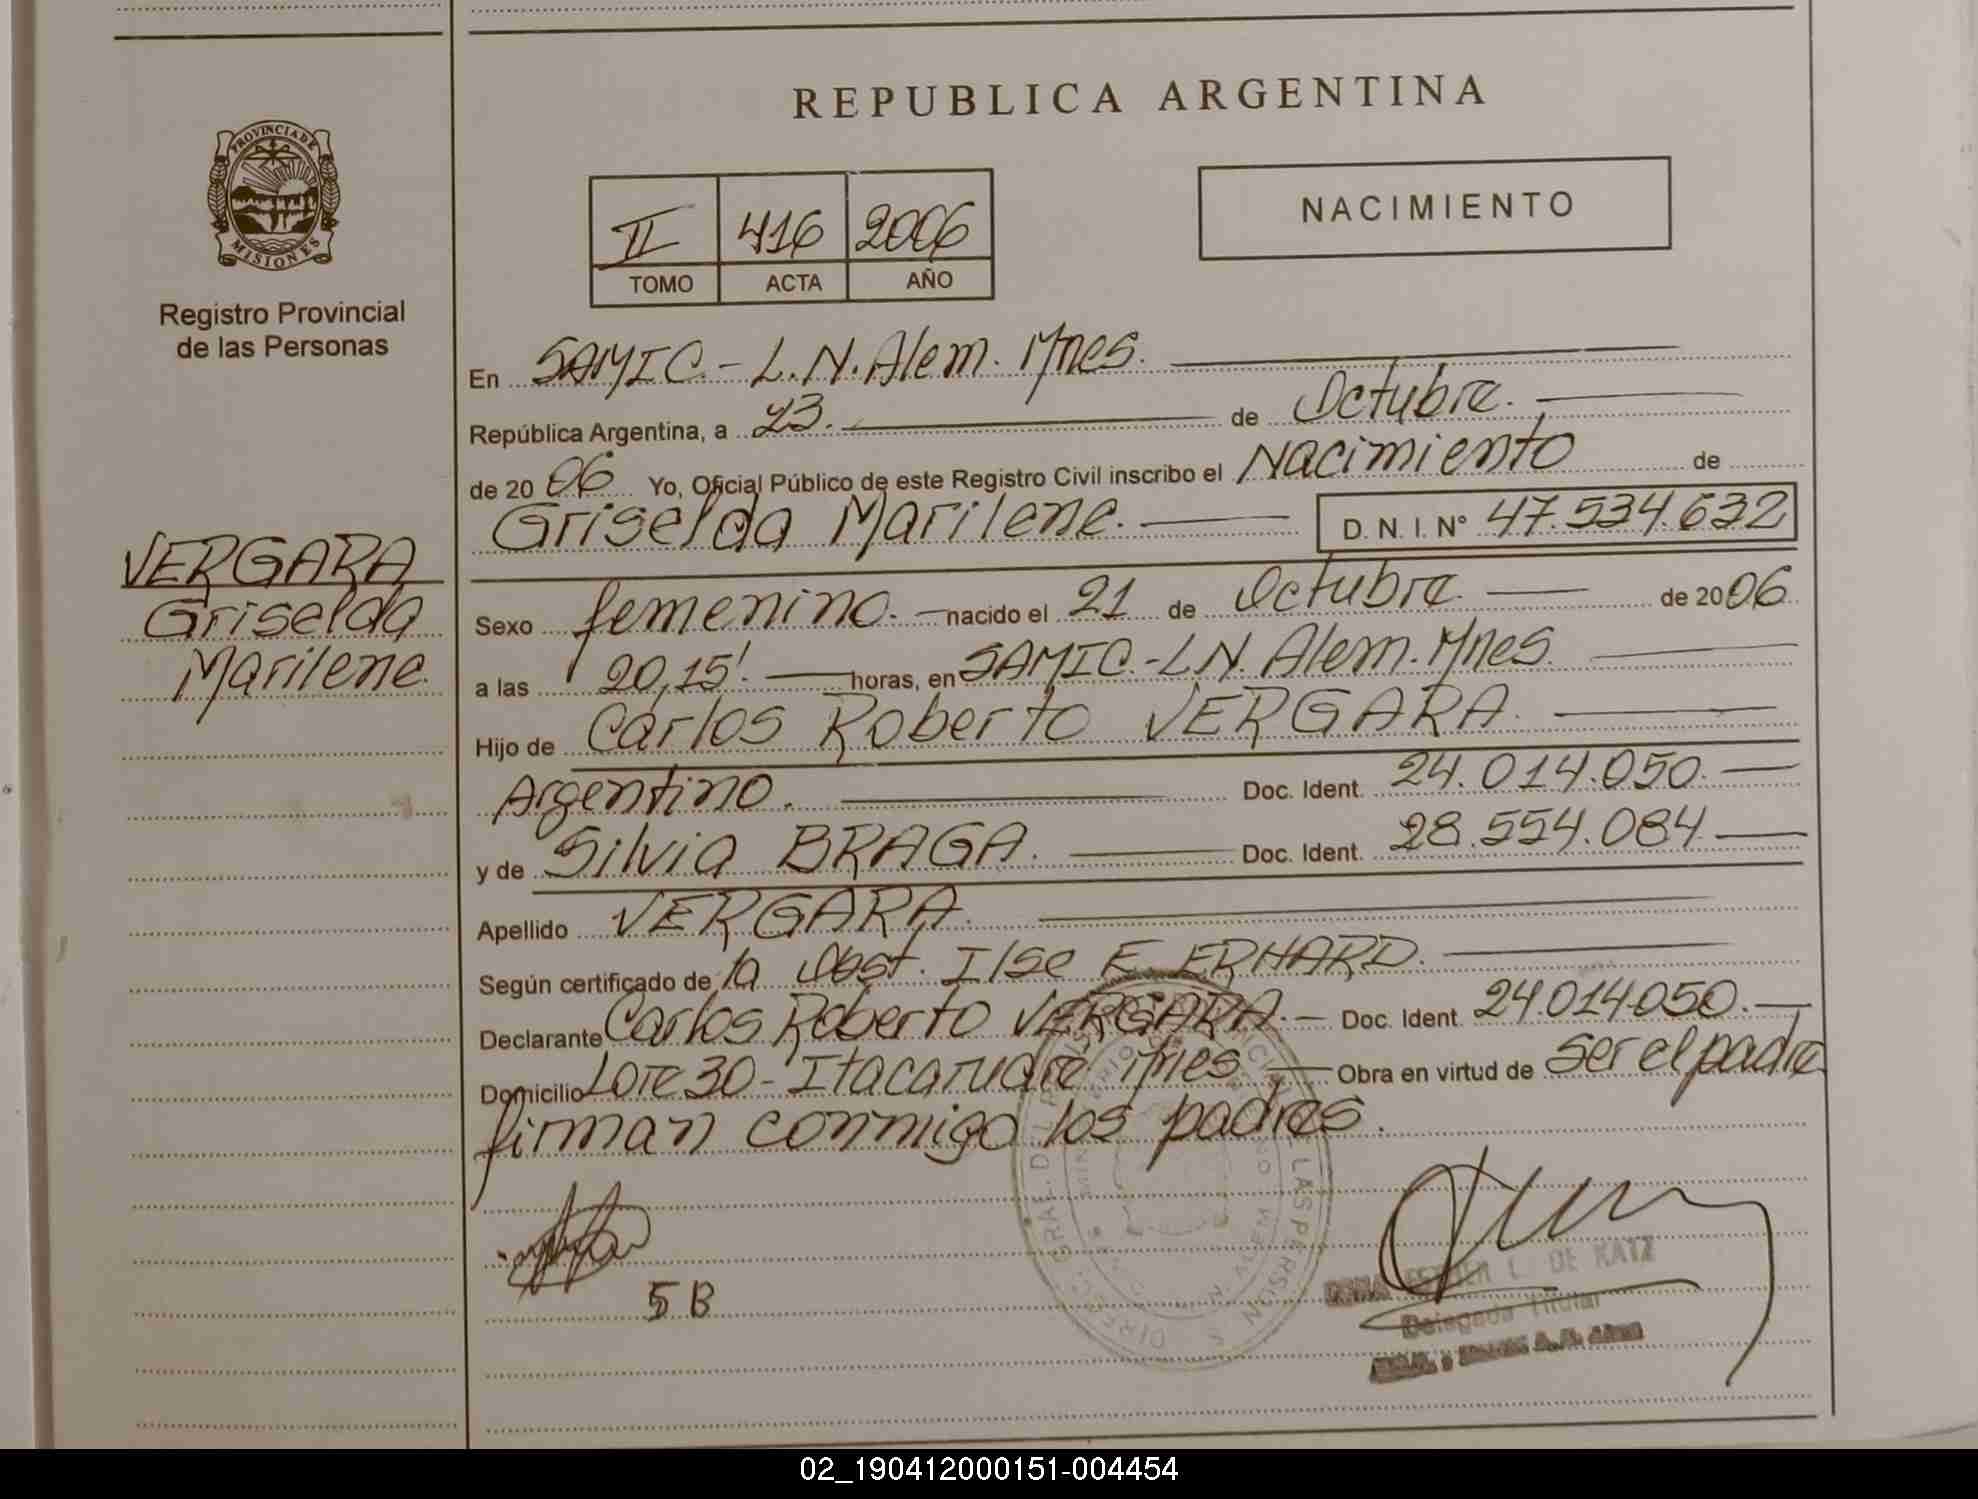 REPUBLICA ARGENTINA
PROVINCIA DE
MISIONES
Registro Provincial
de las Personas
II 416 2006
TOMO ACTA AÑO
NACIMIENTO
En SAMIC.- L.N.Alem. Mnes.
República Argentina, a 23. de Octubre.
de 2006 Yo, Oficial Público de este Registro Civil inscribo el Nacimiento de
Griselda Marilene. D. N. I. Nº 47.534.632
VERGARA
Griselda
Marilene.
Sexo femenino. nacido el 21 de Octubre de 2006
a las 20,15'. horas, en SAMIC.-LN. Alem. Mnes.
Hijo de Carlos Roberto VERGARA.
Argentino. Doc. Ident. 24.014.050.
y de Silvia BRAGA. Doc. Ident. 28.554.084
Apellido VERGARA.
Según certificado de la Obst. Ilse E. ERHARD.
Declarante Carlos Roberto VERGARA.- Doc. Ident. 24.014.050.
Domicilio Lote 30- Itacaruaré Mnes Obra en virtud de ser el padre
firman conmigo los padres.
5B
DE KATZ
Delegada Titular
02_190412000151-004454